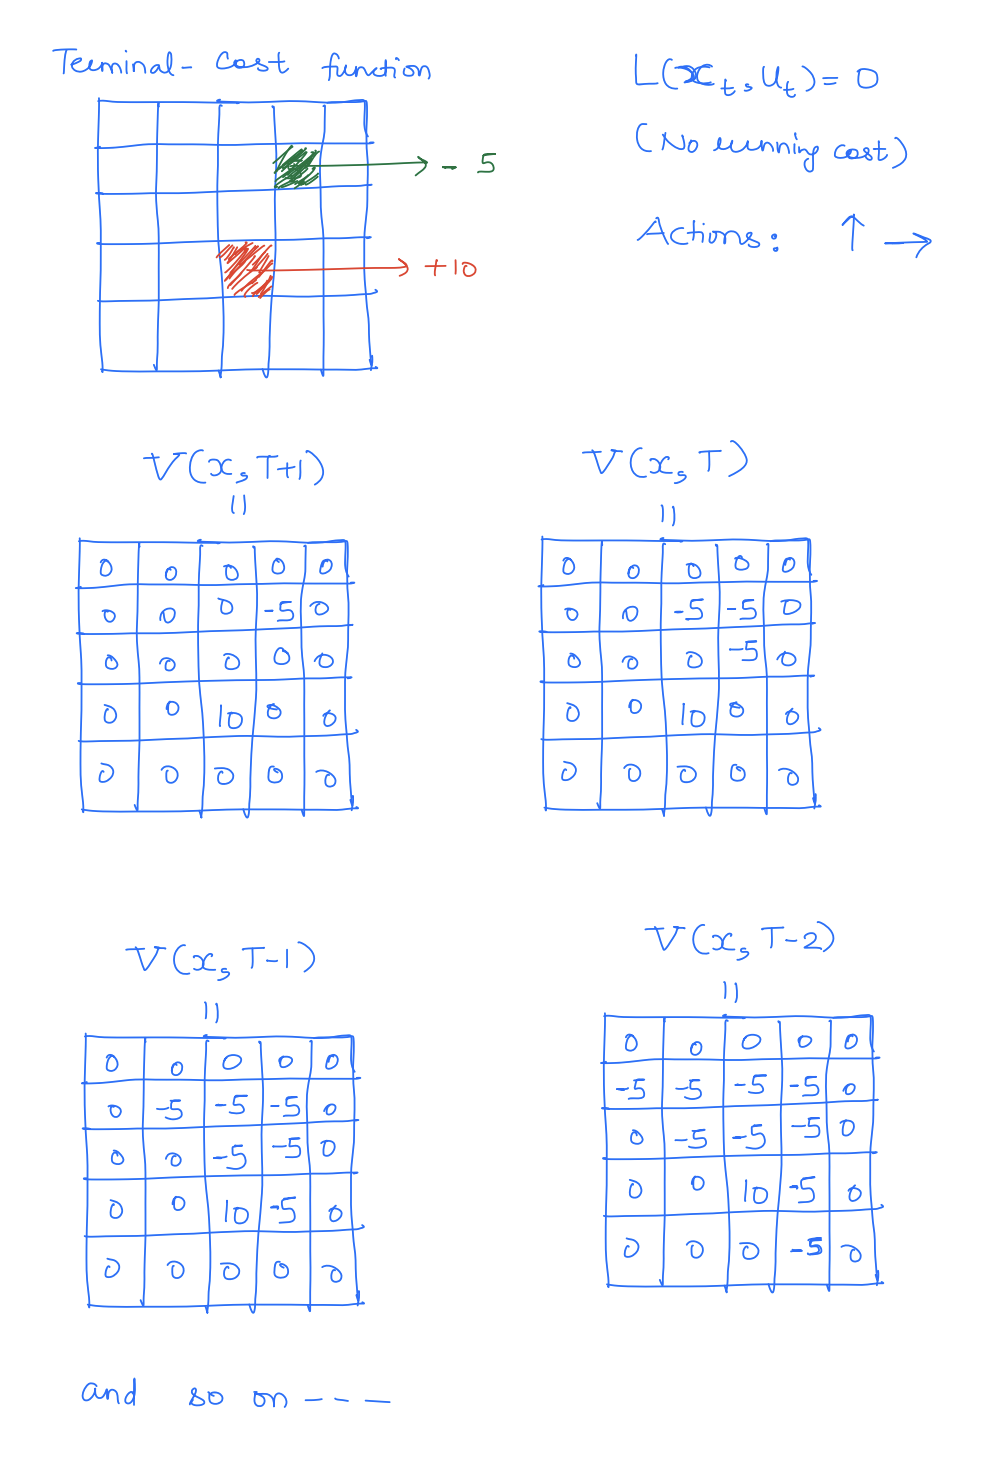 Terminal- Cost function
L(x_t, u_t) = 0
(No running cost)
Actions: ↑ →
- 5
+10
V(x, T+1)
=
0 0 0 0 0
0 0 0 -5 0
0 0 0 0 0
0 0 10 0 0
0 0 0 0 0
V(x, T)
=
0 0 0 0 0
0 0 -5 -5 0
0 0 0 -5 0
0 0 10 0 0
0 0 0 0 0
V(x, T-1)
=
0 0 0 0 0
0 -5 -5 -5 0
0 0 -5 -5 0
0 0 10 -5 0
0 0 0 0 0
V(x, T-2)
=
0 0 0 0 0
-5 -5 -5 -5 0
0 -5 -5 -5 0
0 0 10 -5 0
0 0 0 -5 0
and so on ----